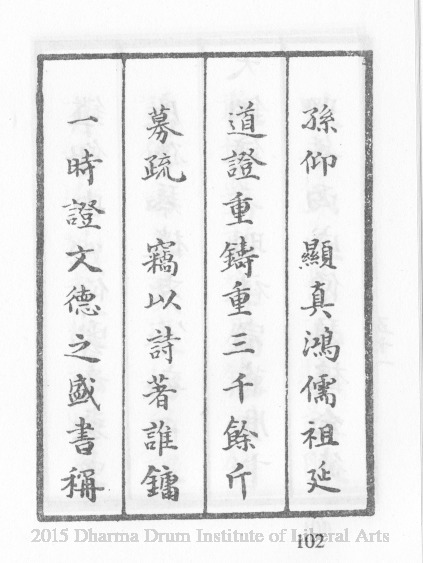 孫仰　顯真鴻儒祖延
道證重鑄重三千餘斤
募疏　竊以詩著誰鏞
一時證文德之盛書稱
2015 Dharma Drum Institute of Liberal Arts
102